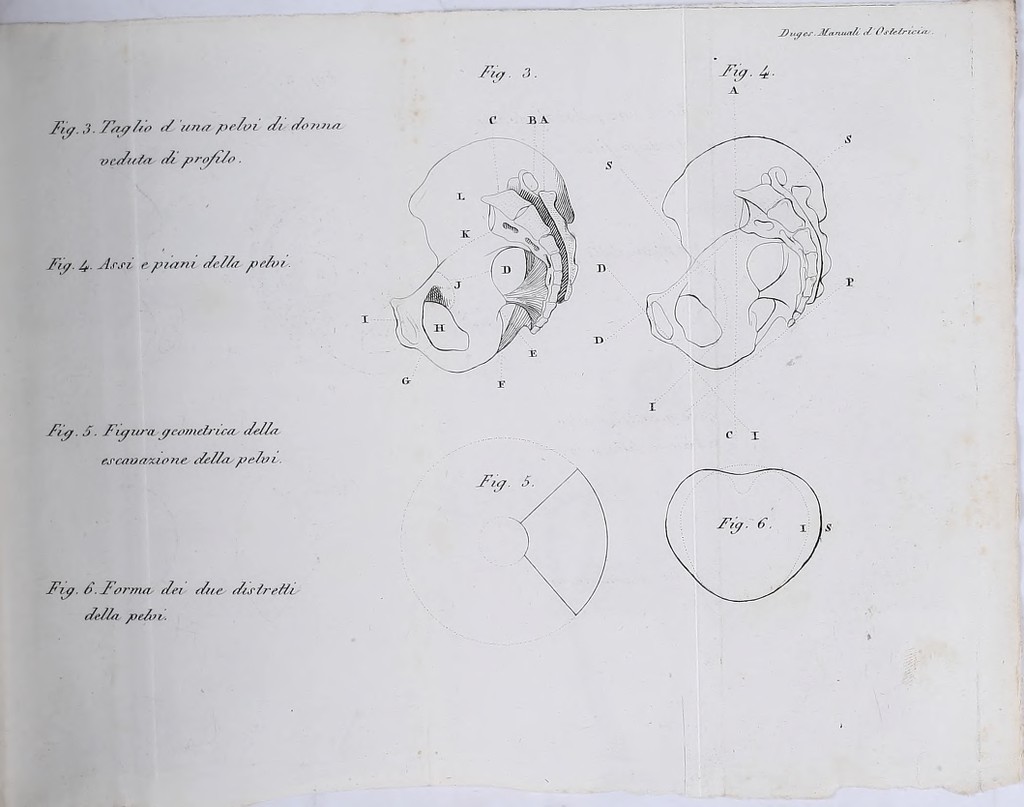 Duges. Manuali d'Ostetricia.
Fig. 3.
Fig. 4.
A
Fig. 3. Taglio d'una pelvi di donna
veduta di profilo.
C B A
S
S
L
K
Fig. 4. Assi e piani della pelvi.
D
D
J
P
I
H
D
E
G
F
I
Fig. 5. Figura geometrica della
escavazione della pelvi.
C I
Fig. 5.
Fig. 6.
I S
Fig. 6. Forma dei due distretti
della pelvi.